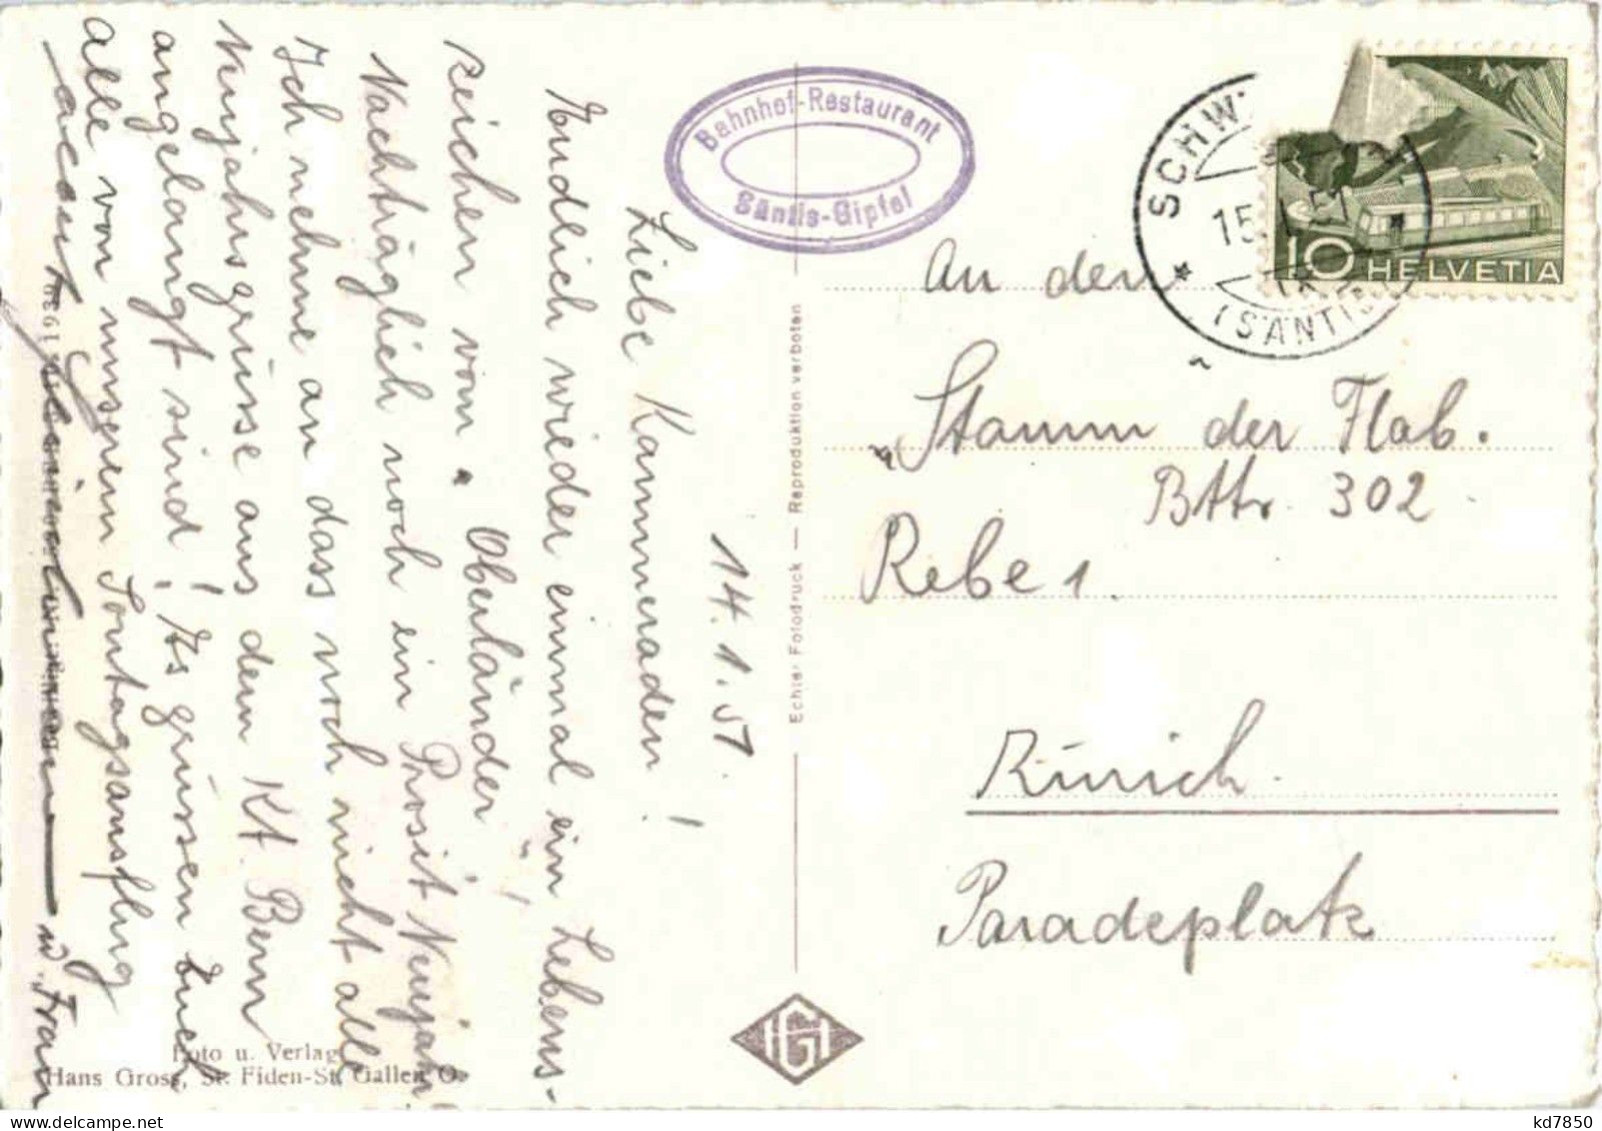 14.1.51.
Liebe Kammeraden!
Endlich wieder einmal ein Lebens-
zeichen vom "Oberländer"!
Nachträglich noch ein Prosit Neujahr!
Ich nehme an dass noch nicht alle
Neujahrsgrüsse aus dem Kt. Bern
angelangt sind! Es grüssen Euch
alle von unserem Sontagsausflug
u. Frau
Foto u. Verlag
Hans Gross, St. Fiden-St. Gallen O.
Bahnhof-Restaurant
Säntis-Gipfel
Echter Fotodruck — Reproduktion verboten
HG
SCHW
15.
(SÄNTIS)
10 HELVETIA
An den
Stamm der Flab.
Bttr. 302
Rebe 1
Zürich.
Paradeplatz
kd7850